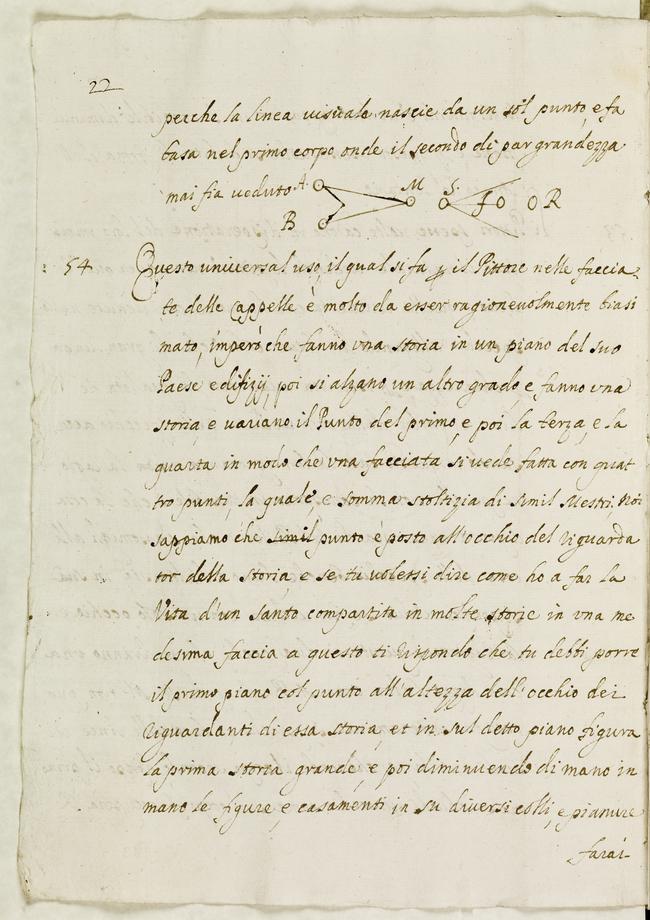 22
perche la linea uisuale nascie da un sol punto, e fa
basa nel primo corpo onde il secondo di par grandezza
mai fia ueduto A M S f R
B
54 Questo uniuersal uso, il qual si fa p il Pittore nelle faccia-
te delle Cappelle è molto da esser ragioneuolmente biasi
mato, imperò che fanno vna storia in un piano del suo
Paese edifizij, poi si alzano un altro grado, e fanno vna
storia, e uariano il Punto del primo, e poi la terza, e la
quarta in modo che vna facciata si uede fatta con quat
tro punti, la quale, e somma stoltizia di simil Mestri. Noi
sappiamo che simil punto è posto all'occhio del riguarda
tor della storia, e se tu uolessi dire come ho a far la
Vita d'un santo compartita in molte storie in vna me
desima faccia a questo ti rispondo che tu debbi porre
il primo piano col punto all'altezza dell'occhio dei
riguardanti di essa storia, et in sul detto piano figura
la prima storia grande, e poi diminuendo di mano in
mano le figure, e casamenti in su diuersi colli, e pianure
farai